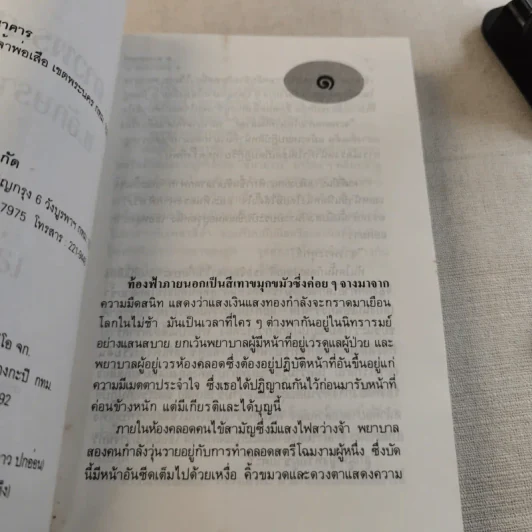 าคาร
าพ่อเสือ เขตพระนคร กทม.
กัด
ญกรุง 6 วังบูรพาฯ กทม.
7975 โทรสาร
โอ จก.
องกะปิ กทม.
92
าว ปกอ่อน
๑
ท้องฟ้าภายนอกเป็นสีเทาขมุกขมัวซึ่งค่อย ๆ จางมาจาก
ความมืดสนิท แสดงว่าแสงเงินแสงทองกำลังจะกราดมาเยือน
โลกในไม่ช้า มันเป็นเวลาที่ใคร ๆ ต่างพากันอยู่ในนิทรารมย์
อย่างแสนสบาย ยกเว้นพยาบาลผู้มีหน้าที่อยู่เวรดูแลผู้ป่วย และ
พยาบาลผู้อยู่เวรห้องคลอดซึ่งต้องอยู่ปฏิบัติหน้าที่อันขึ้นอยู่แก่
ความมีเมตตาประจำใจ ซึ่งเธอได้ปฏิญาณกันไว้ก่อนมารับหน้าที่
ค่อนข้างหนัก แต่มีเกียรติและได้บุญนี้
ภายในห้องคลอดคนไข้สามัญซึ่งมีแสงไฟสว่างจ้า พยาบาล
สองคนกำลังวุ่นวายอยู่กับการทำคลอดสตรีโฉมงามผู้หนึ่ง ซึ่งบัด
นี้มีหน้าอันซีดเต็มไปด้วยเหงื่อ คิ้วขมวดและดวงตาแสดงความ